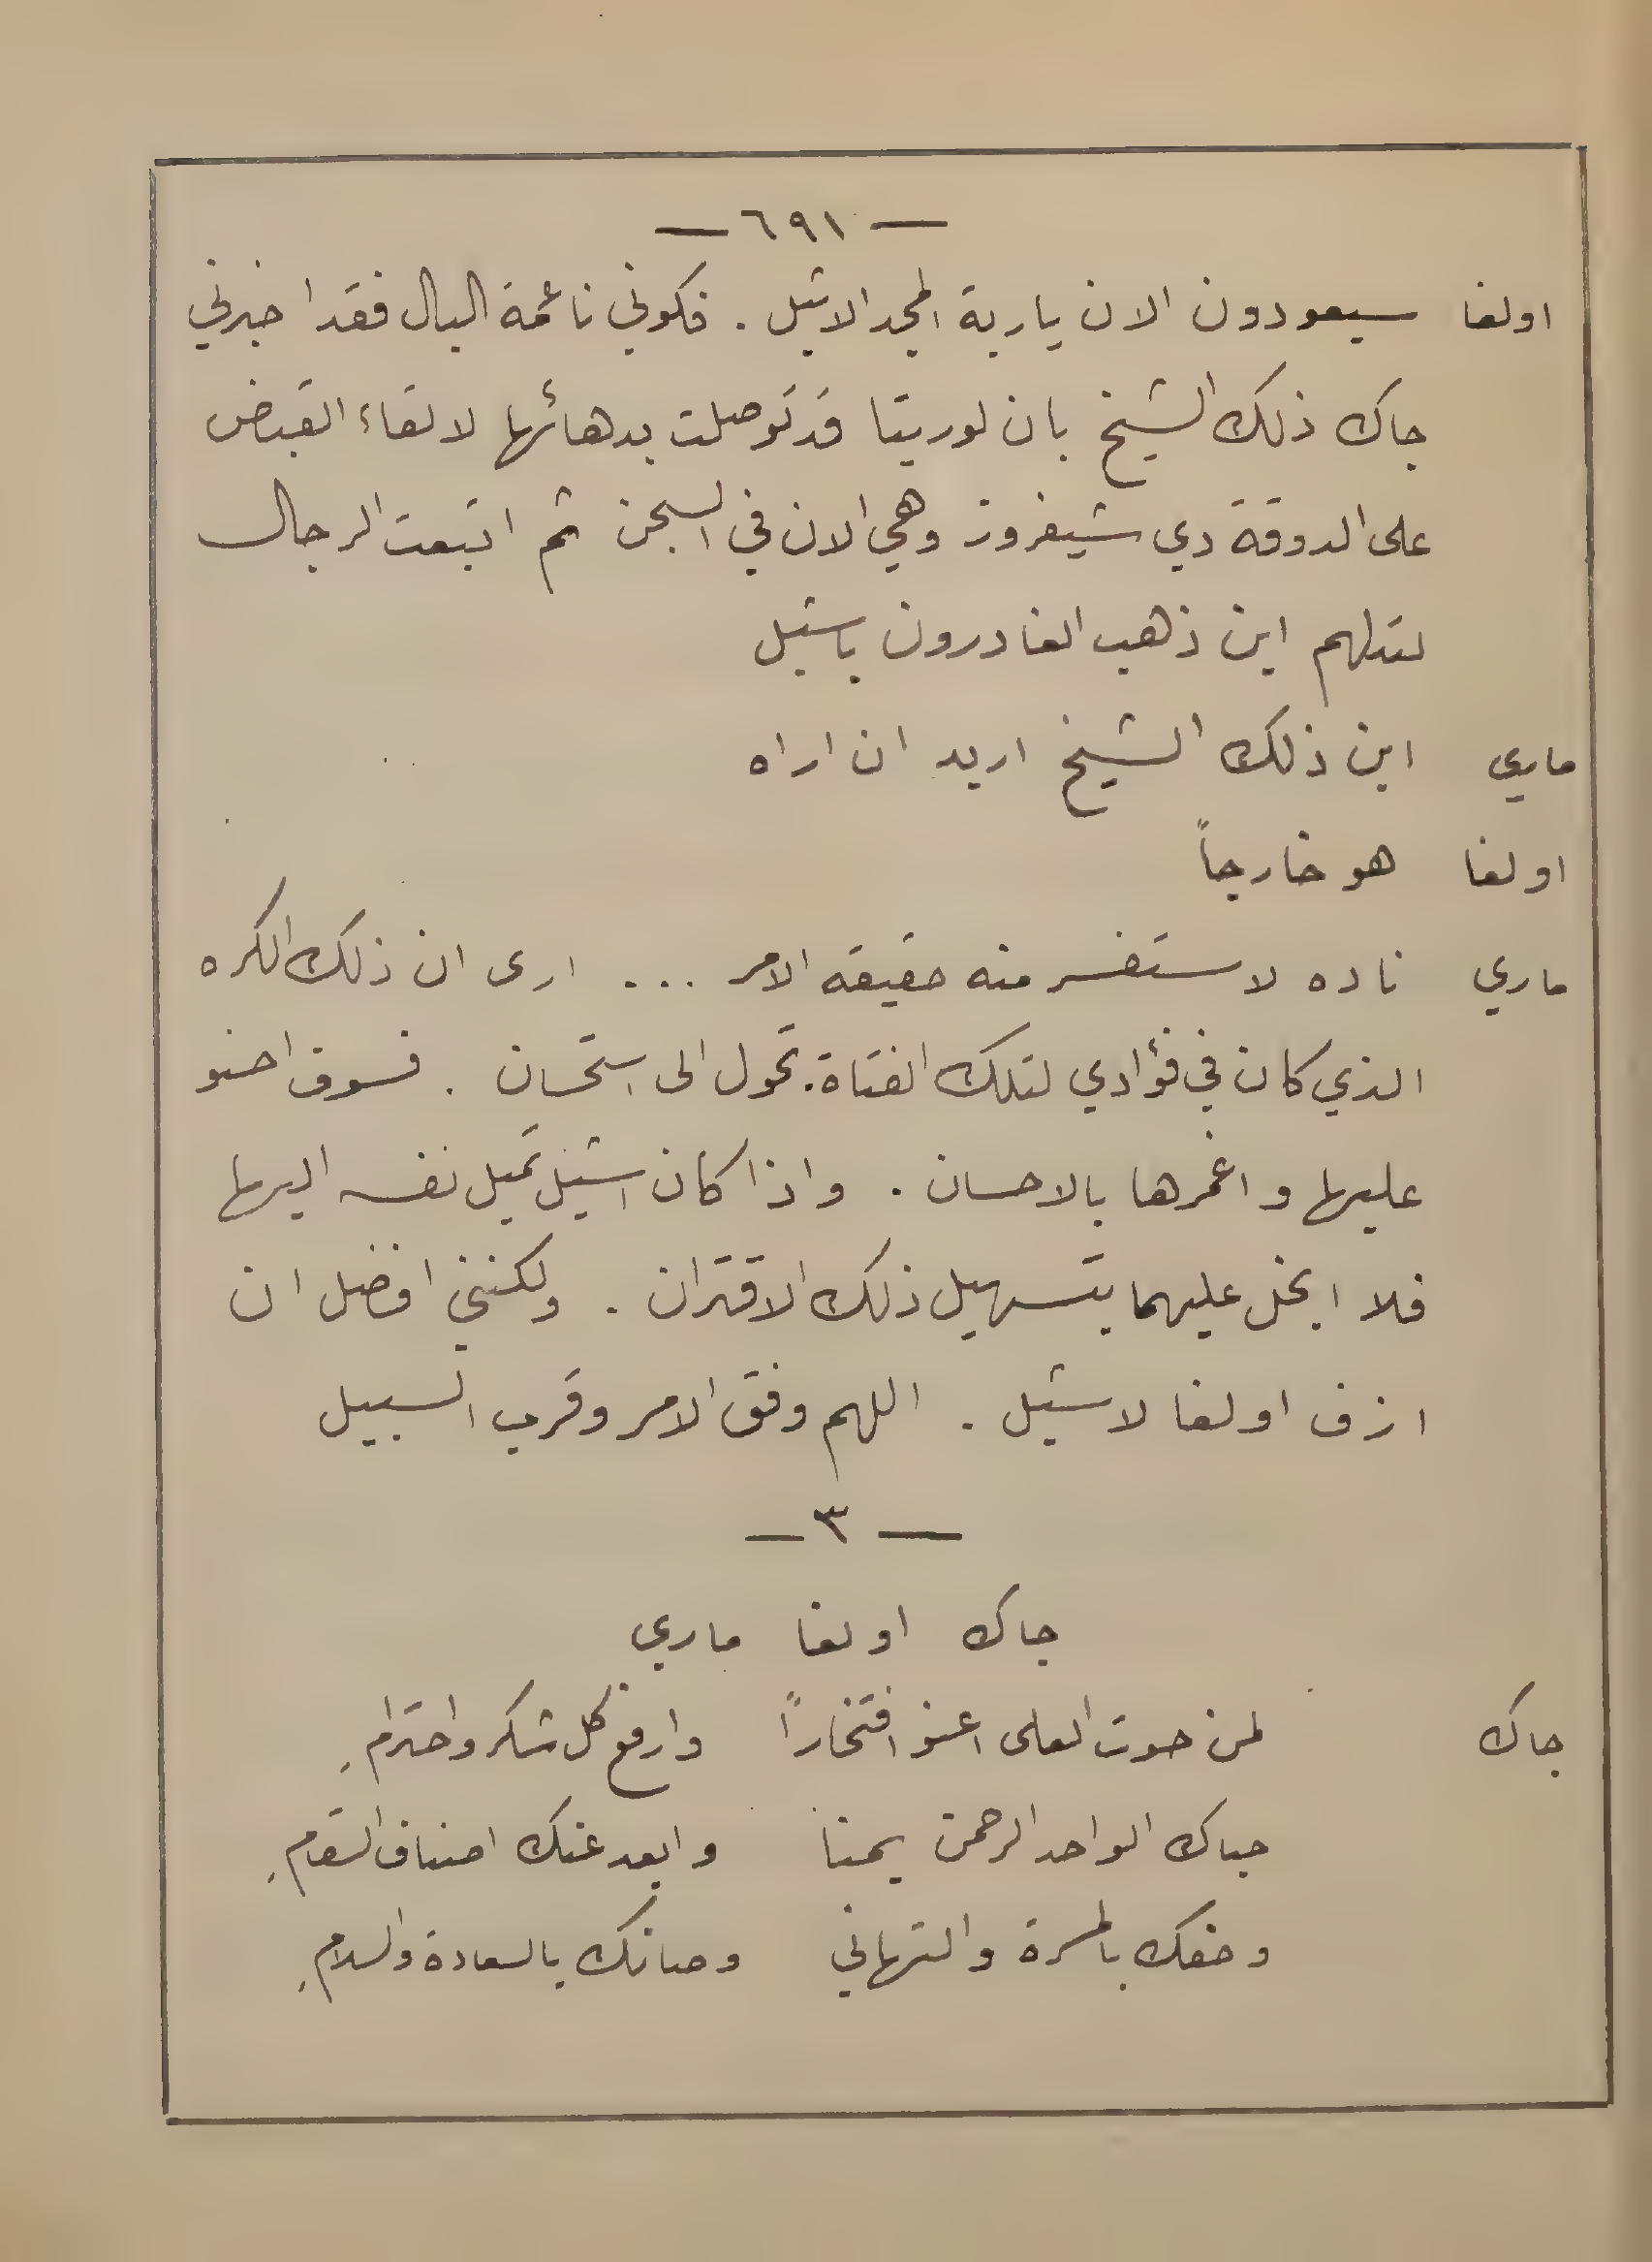 — ٦٩١ —
اولغا سيعودون الان ياربة المجد الاثيل . فكوني ناعمة البال فقد اخبرني
جاك ذلك الشيخ بان لوريتا قد توصلت بدهائها لالقاء القبض
على الدوقة دي شيفروز وهي الان في السجن ثم اتبعت الرجال
لتدلهم اين ذهب الغادرون باستيل
ماري اين ذلك الشيخ اريد ان اراه
اولغا هو خارجاً
ماري ناده لاستفسر منه حقيقه الامر .... ارى ان ذلك الكره
الذي كان في فؤادي لتلك الفتاة . تحول الى استحسان . فسوف احنو
عليها واغمرها بالاحسان . واذا كان استيل تميل نفسه اليها
فلا ابخل عليهما بتسهيل ذلك الاقتران . ولكنني افضل ان
ازف اولغا لاستيل . اللهم وفق الامر وقرب السبيل
— ٣ —
جاك اولغا ماري
جاك لمن حوت العلى اعنو افتخاراً وارفع كل شكر واحترامِ
حباك الواحد الرحمن يمنا وابعد عنك اصناف السقامِ
وحفك بالمسرة والتهاني وصانك بالسعادة والسلامِ